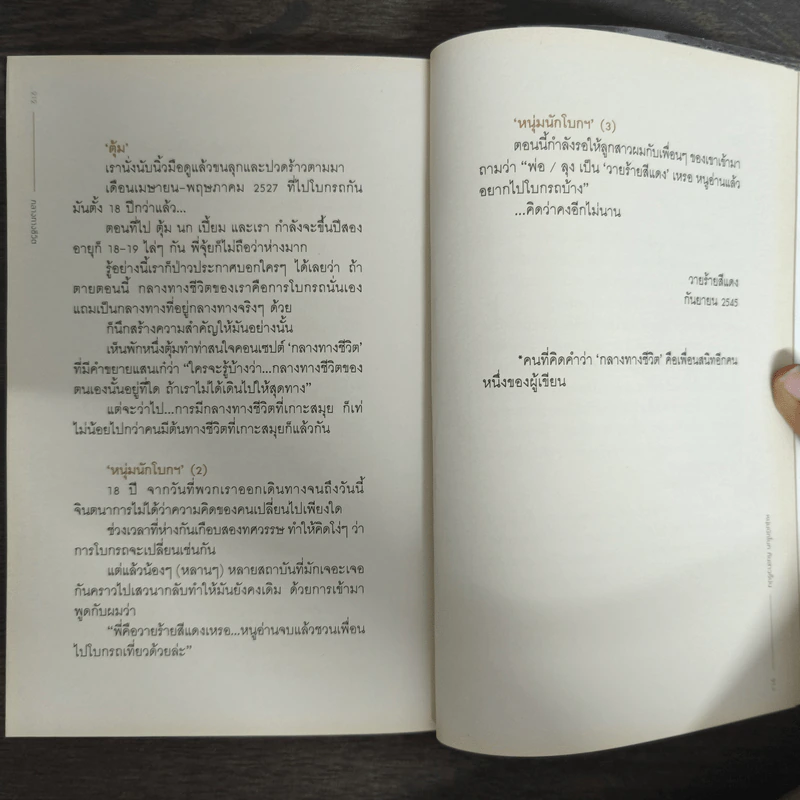 'ตุ้ม'
เรานั่งนับนิ้วมือดูแล้วขนลุกและปวดร้าวตามมา
เดือนเมษายน-พฤษภาคม 2527 ที่ไปโบกรถกัน
มันตั้ง 18 ปีกว่าแล้ว...
ตอนที่ไป ตุ้ม นก เปี้ยม และเรา กำลังจะขึ้นปีสอง
อายุก็ 18-19 ไล่ๆ กัน พี่จุ้ยก็ไม่ถือว่าห่างมาก
รู้อย่างนี้เราก็ป่าวประกาศบอกใครๆ ได้เลยว่า ถ้า
ตายตอนนี้ กลางทางชีวิตของเราคือการโบกรถนั่นเอง
แถมเป็นกลางทางที่อยู่กลางทางจริงๆ ด้วย
ก็นึกสร้างความสำคัญให้มันอย่างนั้น
เห็นพักหนึ่งตุ้มทำท่าสนใจคอนเซปต์ 'กลางทางชีวิต'
ที่มีคำขยายแสนเก๋ว่า "ใครจะรู้บ้างว่า...กลางทางชีวิตของ
ตนเองนั้นอยู่ที่ใด ถ้าเราไม่ได้เดินไปให้สุดทาง"
แต่จะว่าไป...การมีกลางทางชีวิตที่เกาะสมุย ก็เท่
ไม่น้อยไปกว่าคนมีต้นทางชีวิตที่เกาะสมุยก็แล้วกัน
'หนุ่มนักโบกฯ' (2)
18 ปี จากวันที่พวกเราออกเดินทางจนถึงวันนี้
จินตนาการไม่ได้ว่าความคิดของคนเปลี่ยนไปเพียงใด
ช่วงเวลาที่ห่างกันเกือบสองทศวรรษ ทำให้คิดโง่ๆ ว่า
การโบกรถจะเปลี่ยนเช่นกัน
แต่แล้วน้องๆ (หลานๆ) หลายสถาบันที่มักเจอะเจอ
กันคราวไปเสวนากลับทำให้มันยังคงเดิม ด้วยการเข้ามา
พูดกับผมว่า
"พี่คือวายร้ายสีแดงเหรอ...หนูอ่านจบแล้วชวนเพื่อน
ไปโบกรถเที่ยวด้วยล่ะ"
กลางทางชีวิต
'หนุ่มนักโบกฯ' (3)
ตอนนี้กำลังรอให้ลูกสาวผมกับเพื่อนๆ ของเขาเข้ามา
ถามว่า "พ่อ / ลุง เป็น 'วายร้ายสีแดง' เหรอ หนูอ่านแล้ว
อยากไปโบกรถบ้าง"
...คิดว่าคงอีกไม่นาน
วายร้ายสีแดง
กันยายน 2545
*คนที่คิดคำว่า 'กลางทางชีวิต' คือเพื่อนสนิทอีกคน
หนึ่งของผู้เขียน